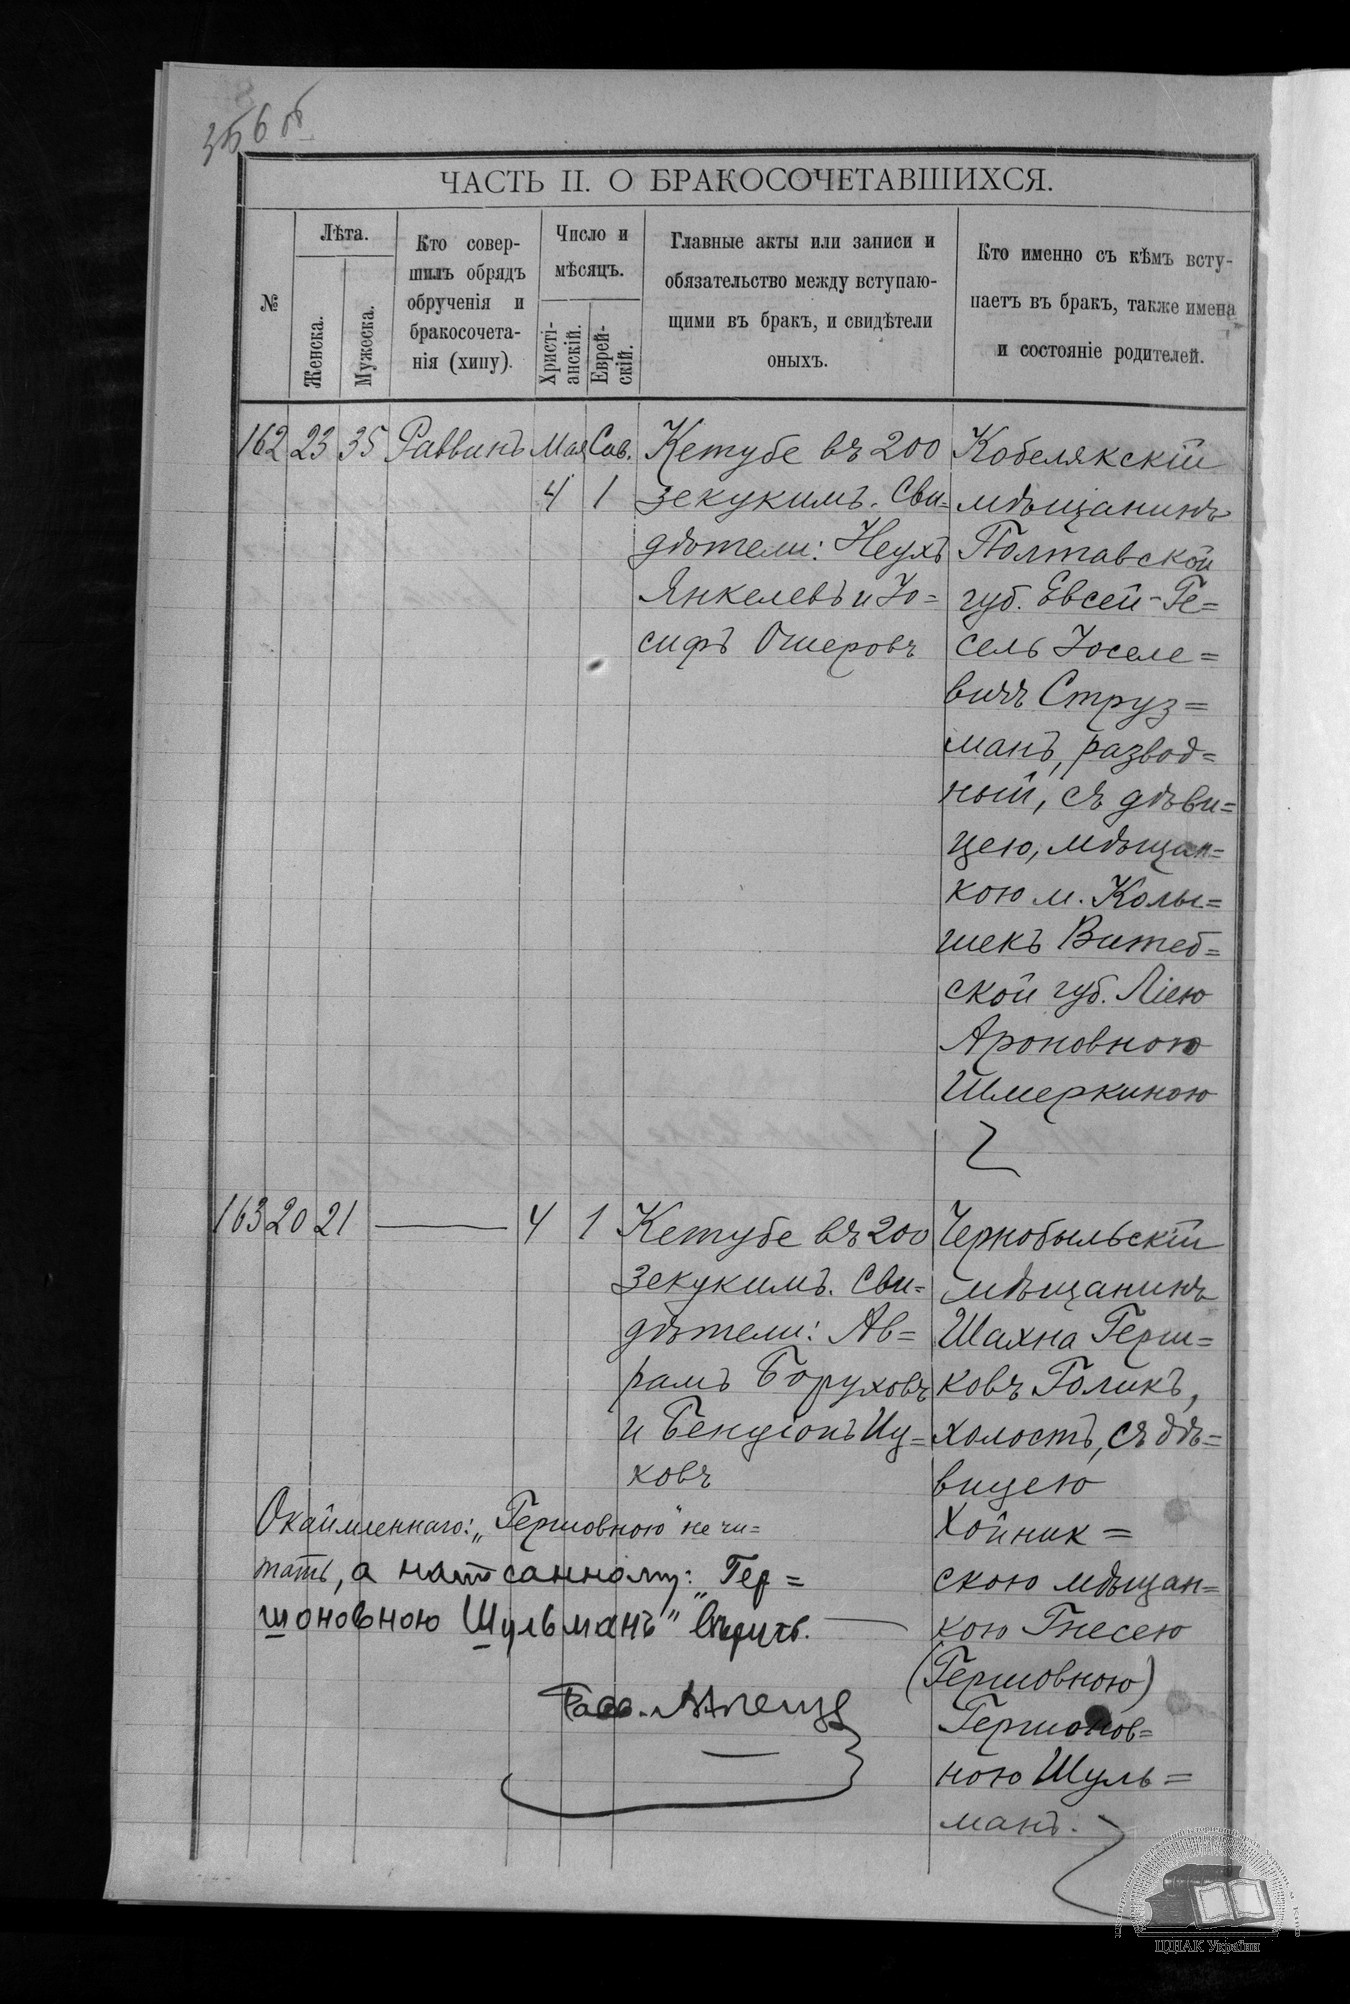 356 об
ЧАСТЬ II. О БРАКОСОЧЕТАВШИХСЯ.
№
Лѣта.
Женска.
Мужеска.
Кто совер-
шилъ обрядъ
обрученія и
бракосочета-
нія (хипу).
Число и
мѣсяцъ.
Христі-
анскій.
Еврей-
скій.
Главные акты или записи и
обязательство между вступаю-
щими въ бракъ, и свидѣтели
оныхъ.
Кто именно съ кѣмъ всту-
паетъ въ бракъ, также имена
и состояніе родителей.
162 23 35 Раввинъ Мая Сив.
4 1
Кетубе въ 200
зекукимъ. Сви=
дѣтели: Неухъ
Янкелевъ и Іо=
сифъ Ошеровъ
Кобелякскій
мѣщанинъ
Полтавской
губ. Евсей-Ге=
сель Іоселе=
вичъ Струз=
манъ, развод=
ный, съ дѣви=
цею, мѣщан=
кою м. Колы=
шекъ Витеб=
ской губ. Ліею
Ароновною
Шмеркиною
163 20 21 — 4 1
Кетубе въ 200
зекукимъ. Сви=
дѣтели: Ав=
рамъ Боруховъ
и Бенціонъ Иц=
ковъ
Чернобыльскій
мѣщанинъ
Шахна Герш=
ковъ Голикъ,
холостъ, съ дѣ=
вицею
Хойник=
скою мѣщан=
кою Гнесею
(Гершовною)
Гершонов=
ною Шуль=
манъ.
Окаймленнаго: „Гершовною" не чи=
тать, а написанному: „Гер=
шоновною Шульманъ" вѣрить.
Рав.
ЦДІАК України